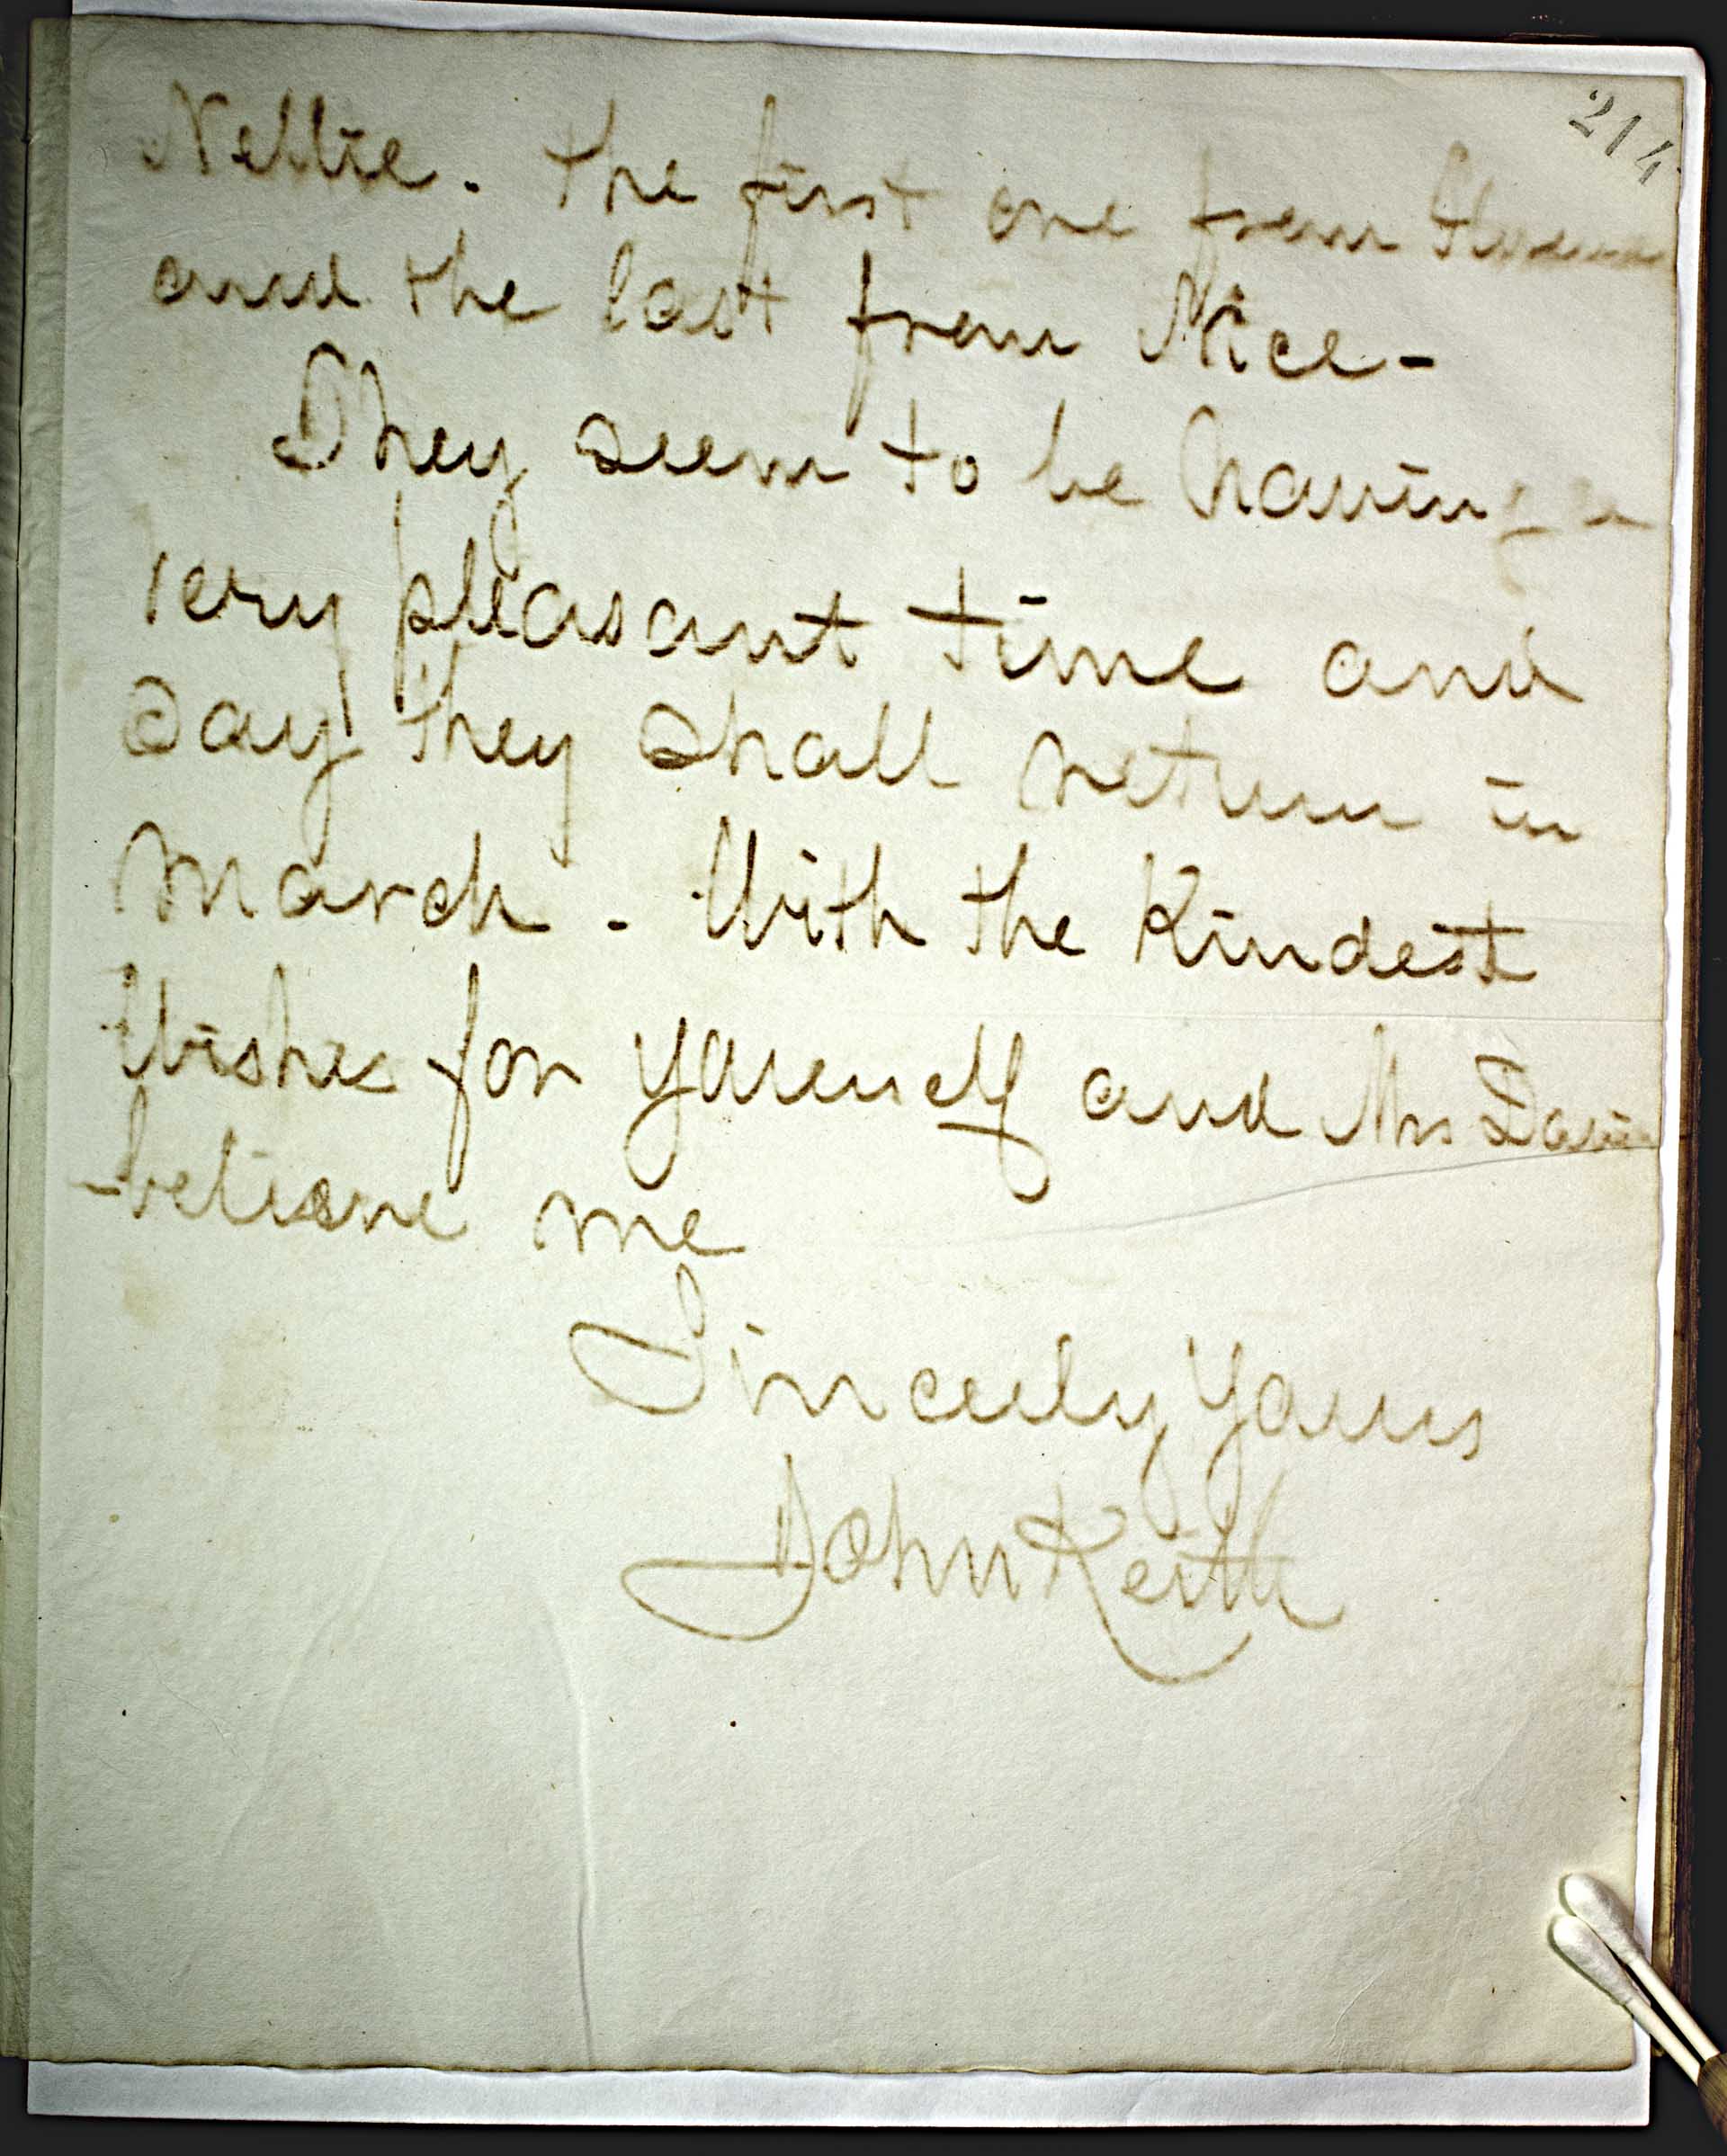 214
Nellie. The first one from
and the last from Nice-
They seem to be having a
very pleasant time and
say they shall return in
March. With the Kindest
Wishes for yourself and Mrs
believe me
Sincerely Yours
John Keith